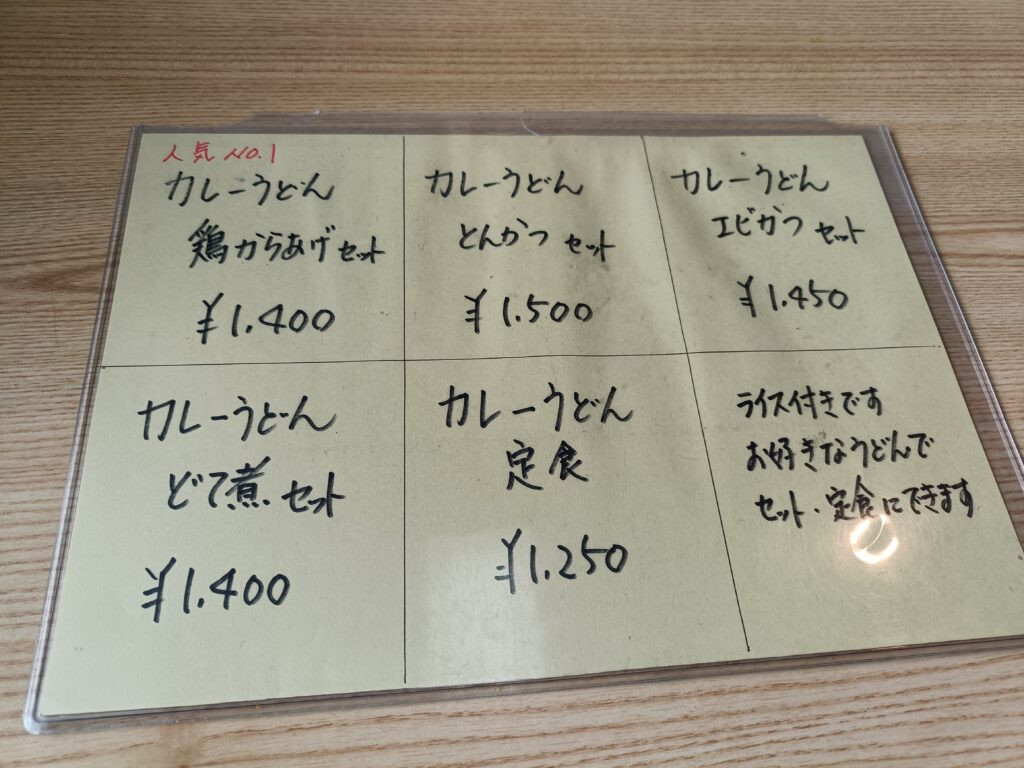 人気 NO.1
カレーうどん
鶏からあげセット
¥1.400
カレーうどん
とんかつ セット
¥1.500
カレーうどん
エビかつ セット
¥1.450
カレーうどん
どて煮 セット
¥1.400
カレーうどん
定食
¥1.250
ライス付きです
お好きなうどんで
セット・定食にできます